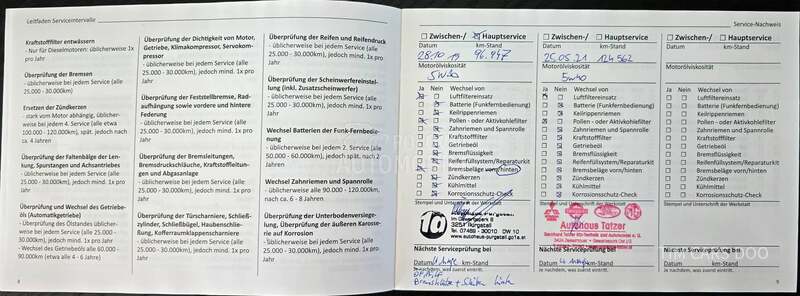 Leitfaden Serviceintervalle
Kraftstofffilter entwässern
- Nur für Dieselmotoren: üblicherweise 1x pro Jahr
Überprüfung der Bremsen
- üblicherweise bei jedem Service (alle
25.000 - 30.000km), jedoch mind. 1x pro
Jahr
Ersetzen der Zündkerzen
- stark vom Motor abhängig, üblicher-
weise bei jedem 4. Service (alle etwa
100.000 -120.000km), spät. jedoch nach
ca. 4 Jahren
Überprüfung der Faltenbälge der Len-
kung, Spurstangen und Achsantriebes
- üblicherweise bei jedem Service (alle
25.000 - 30.000km), jedoch mind. 1x pro
Jahr
Überprüfung und Wechsel des Getriebe-
öl (Automatikgetriebe)
- Überprüfung des Ölstandes üblicher-
weise bei jedem Service (alle 25.000 -
30.000km), jedoch mind. 1x pro Jahr
- Wechsel des Getriebeöl alle 60.000 -
90.000km (etwa alle 4 - 6 Jahre)
Überprüfung der Dichtigkeit von Motor,
Getriebe, Klimakompressor, Servokom-
pressor
- üblicherweise bei jedem Service (alle
25.000 - 30.000km), jedoch mind. 1x pro
Jahr
Überprüfung der Feststellbremse, Rad-
aufhängung sowie vordere und hintere
Federung
- üblicherweise bei jedem Service (alle
25.000 - 30.000km), jedoch mind. 1x pro
Jahr
Überprüfung der Bremsleitungen,
Bremsdruckschläuche, Kraftstoffleitun-
gen und Abgasanlage
- üblicherweise bei jedem Service (alle
25.000 - 30.000km), jedoch mind. 1x pro
Jahr
Überprüfung der Türscharniere, Schließ-
zylinder, Schließbügel, Haubenschlie-
ßung, Kofferraumklappenscharniere
- üblicherweise bei jedem Service (alle
25.000 - 30.000km), jedoch mind. 1x pro
Jahr
Überprüfung der Reifen und Reifendruck
- üblicherweise bei jedem Service (alle
25.000 - 30.000km), jedoch mind. 1x pro
Jahr
Überprüfung der Scheinwerfereinstel-
lung (inkl. Zusatzscheinwerfer)
- üblicherweise bei jedem Service (alle
25.000 - 30.000km), jedoch mind. 1x pro
Jahr
Wechsel Batterien der Funk-Fernbedie-
nung
- üblicherweise bei jedem 2. Service (alle
50.000 - 60.000km), jedoch spät. nach 2
Jahren
Wechsel Zahnriemen und Spannrolle
- üblicherweise alle 90.000 - 120.000km,
nach ca. 6 - 8 Jahren
Überprüfung der Unterbodenversiege-
lung, Überprüfung der äußeren Karosse-
rie auf Korrosion
- üblicherweise bei jedem Service (alle
25.000 - 30.000km), jedoch mind. 1x pro
Jahr
8
Service-Nachweis
Zwischen-/ Hauptservice
Datum km-Stand
28.10.19 96.447
Motorölviskosität
5W40
Ja Nein Wechsel von
Luftfiltereinsatz
Batterie (Funkfernbedienung)
Keilrippenriemen
Pollen - oder Aktivkohlefilter
Zahnriemen und Spannrolle
Kraftstofffilter
Getriebeöl
Bremsflüssigkeit
Reifenfüllsystem/Reparaturkit
Bremsbeläge vorn/hinten
Zündkerzen
Kühlmittel
Korrosionsschutz-Check
Stempel und Unterschrift der Werkstatt
3251 Purgstall
www.autohaus-purgstall.go1a.at
Nächste Serviceprüfung bei
Datum km-Stand
Je nachdem, was zuerst eintritt.
Zwischen-/ Hauptservice
Datum km-Stand
25.05.21 124562
Motorölviskosität
5W40
Ja Nein Wechsel von
Luftfiltereinsatz
Batterie (Funkfernbedienung)
Keilrippenriemen
Pollen - oder Aktivkohlefilter
Zahnriemen und Spannrolle
Kraftstofffilter
Getriebeöl
Bremsflüssigkeit
Reifenfüllsystem/Reparaturkit
Bremsbeläge vorn/hinten
Zündkerzen
Kühlmittel
Korrosionsschutz-Check
Stempel und Unterschrift der Werkstatt
Autohaus Tatzer
Nächste Serviceprüfung bei
Datum km-Stand
Je nachdem, was zuerst eintritt.
Zwischen-/ Hauptservice
Datum km-Stand
Motorölviskosität
Ja Nein Wechsel von
Luftfiltereinsatz
Batterie (Funkfernbedienung)
Keilrippenriemen
Pollen - oder Aktivkohlefilter
Zahnriemen und Spannrolle
Kraftstofffilter
Getriebeöl
Bremsflüssigkeit
Reifenfüllsystem/Reparaturkit
Bremsbeläge vorn/hinten
Zündkerzen
Kühlmittel
Korrosionsschutz-Check
Stempel und Unterschrift der Werkstatt
Nächste Serviceprüfung bei
Datum km-Stand
Je nachdem, was zuerst eintritt.
CARS DOO
9